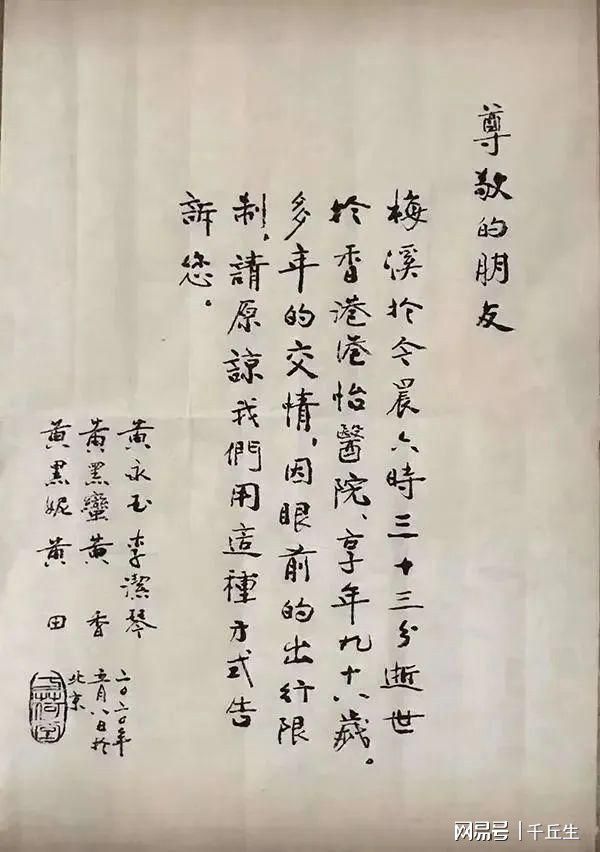 尊敬的朋友
梅溪於今晨六時三十三分逝世
於香港港怡醫院、享年九十八歲。
多年的交情，因眼前的出行限
制，請原諒我們用這種方式告
訴您。
黃永玉 李潔琴
黃黑蠻 黃香
黃黑妮 黃田
二〇二〇年
五月八日於
北京
网易号 | 千丘生